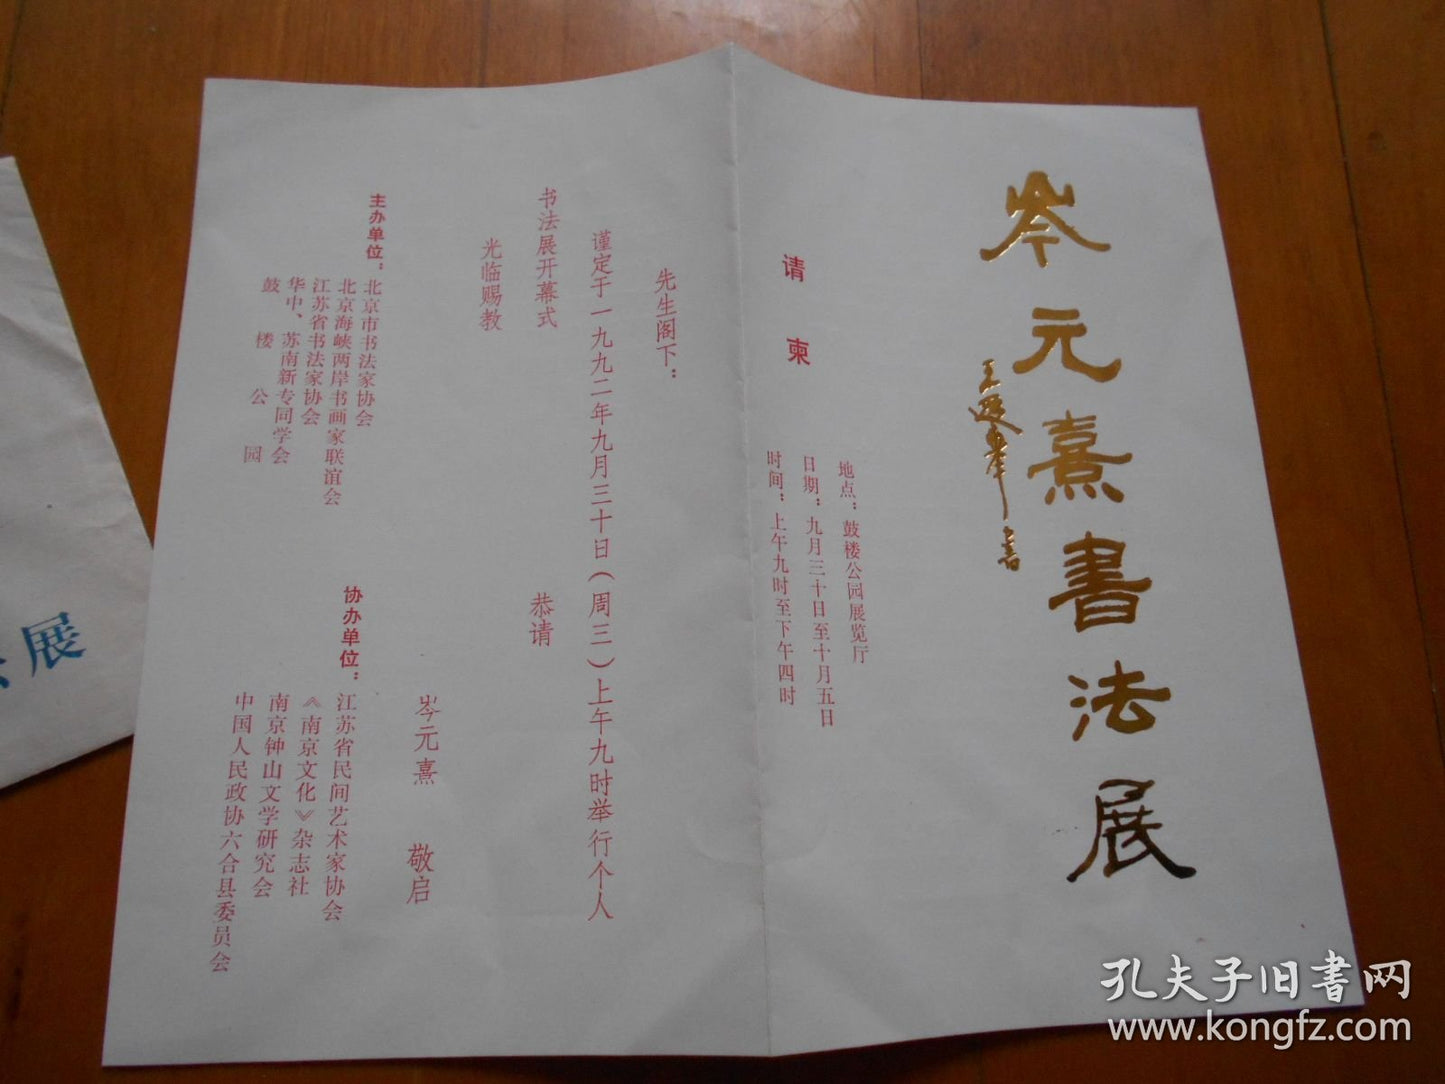 岑元熹書法展
书
请柬
地点：鼓楼公园展览厅
日期：九月三十日至十月五日
时间：上午九时至下午四时
先生阁下：
谨定于一九九二年九月三十日(周三)上午九时举行个人
书法展开幕式
恭请
光临赐教
岑元熹 敬启
主办单位：
北京市书法家协会
北京海峡两岸书画家联谊会
江苏省书法家协会
华中、苏南新专同学会
鼓楼公园
协办单位：
江苏省民间艺术家协会
《南京文化》杂志社
南京钟山文学研究会
中国人民政协六合县委员会
展
孔夫子旧书网
www.kongfz.com